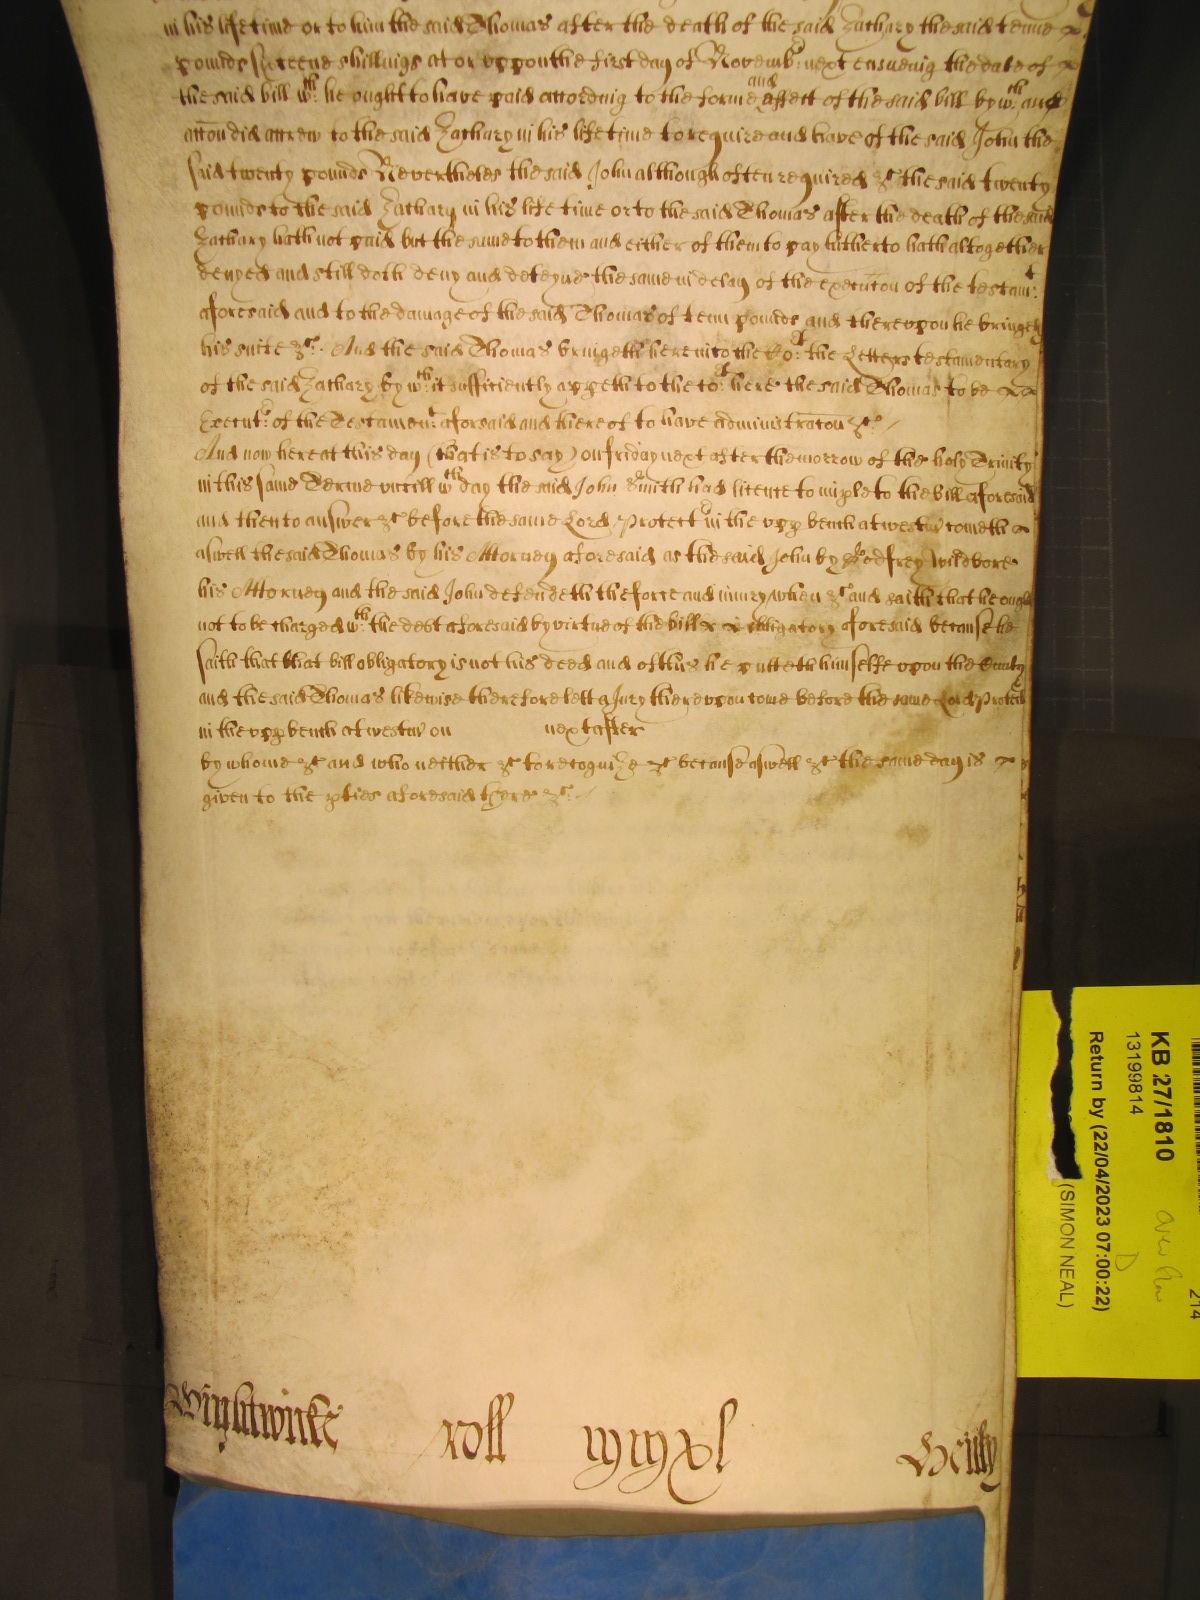 in his life time or to him the said Thomas after the death of the said Zachary the said tenne
pounds sixteene shillings at or vppon the first day of Novemb: next ensueing the date of
the said bill wth: he ought to have paid according to the forme and effect of the said bill by wth: an
accon did accrew to the said Zachary in his life time to require and have of the said John the
said twenty pounds Neverthelesse the said John although often required &c the said twenty
pounds to the said Zachary in his life time or to the said Thomas after the death of the said
Zachary hath not paid but the same to them and either of them to pay hitherto hath altogether
denyed and still doth deny and deteyne the same in delay of the execucon of the testamt:
aforesaid and to the damage of the said Thomas of tenn pounds and therevpon he bringeth
his suite &c: And the said Thomas bringeth here into the Cot: the Letters testamentary
of the said Zachary by wth: it sufficiently appeth to the cot: here the said Thomas to be
Executr: of the Testament: aforsaid and thereof to have administracon &c: /
And now here at this day (that is to say) on friday next after the morrow of the holy Trinity
in this same Terme vntill wth day the said John Smith had licence to imple to the bill aforesaid
and then to answer &c before the same Lord Protectr in the vpp bench at westm cometh
aswell the said Thomas by his Attorney aforesaid as the said John by Godfrey Wildbore
his Attorney and the said John defendeth the force and iniury when &c and saith that he ought
not to be charged wth: the debt aforesaid by virtue of the bill obligatory aforesaid because he
saith that that bill obligatory is not his deed and of this he putteth himselfe vpon the Cuntry
and the said Thomas likewise therefore lett a Jury therevpon come before the same Lord Protectr
in the vpp bench at westm on next after
by whome &c and who neither &c to recognize &c because aswell &c the same day is
given to the pties aforesaid there &c: /
Wightwicke roll mmxl Henly
KB 27/1810
13199814
Return by (22/04/2023 07:00:22)
(SIMON NEAL)
D
214